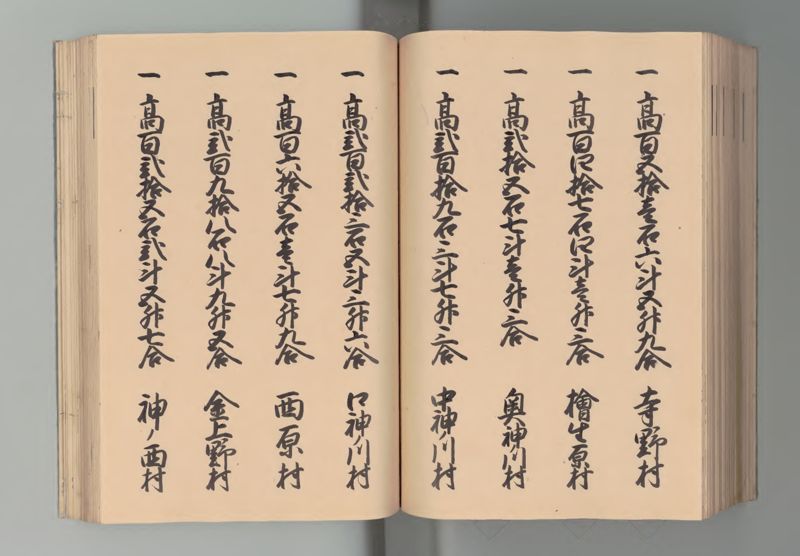 一 高百五拾壱石六斗五升九合 寺野村
一 高百四拾七石四斗壱升三合 檜生原村
一 高弐拾五石七斗壱升三合 奥神ノ川村
一 高弐百拾九石三斗七升三合 中神ノ川村
一 高弐百弐拾三石五斗三升六合 口神ノ川村
一 高百六拾五石壱斗七升九合 西原村
一 高弐百九拾八石八斗九升五合 金上野村
一 高百弐拾五石弐斗五升七合 神ノ西村